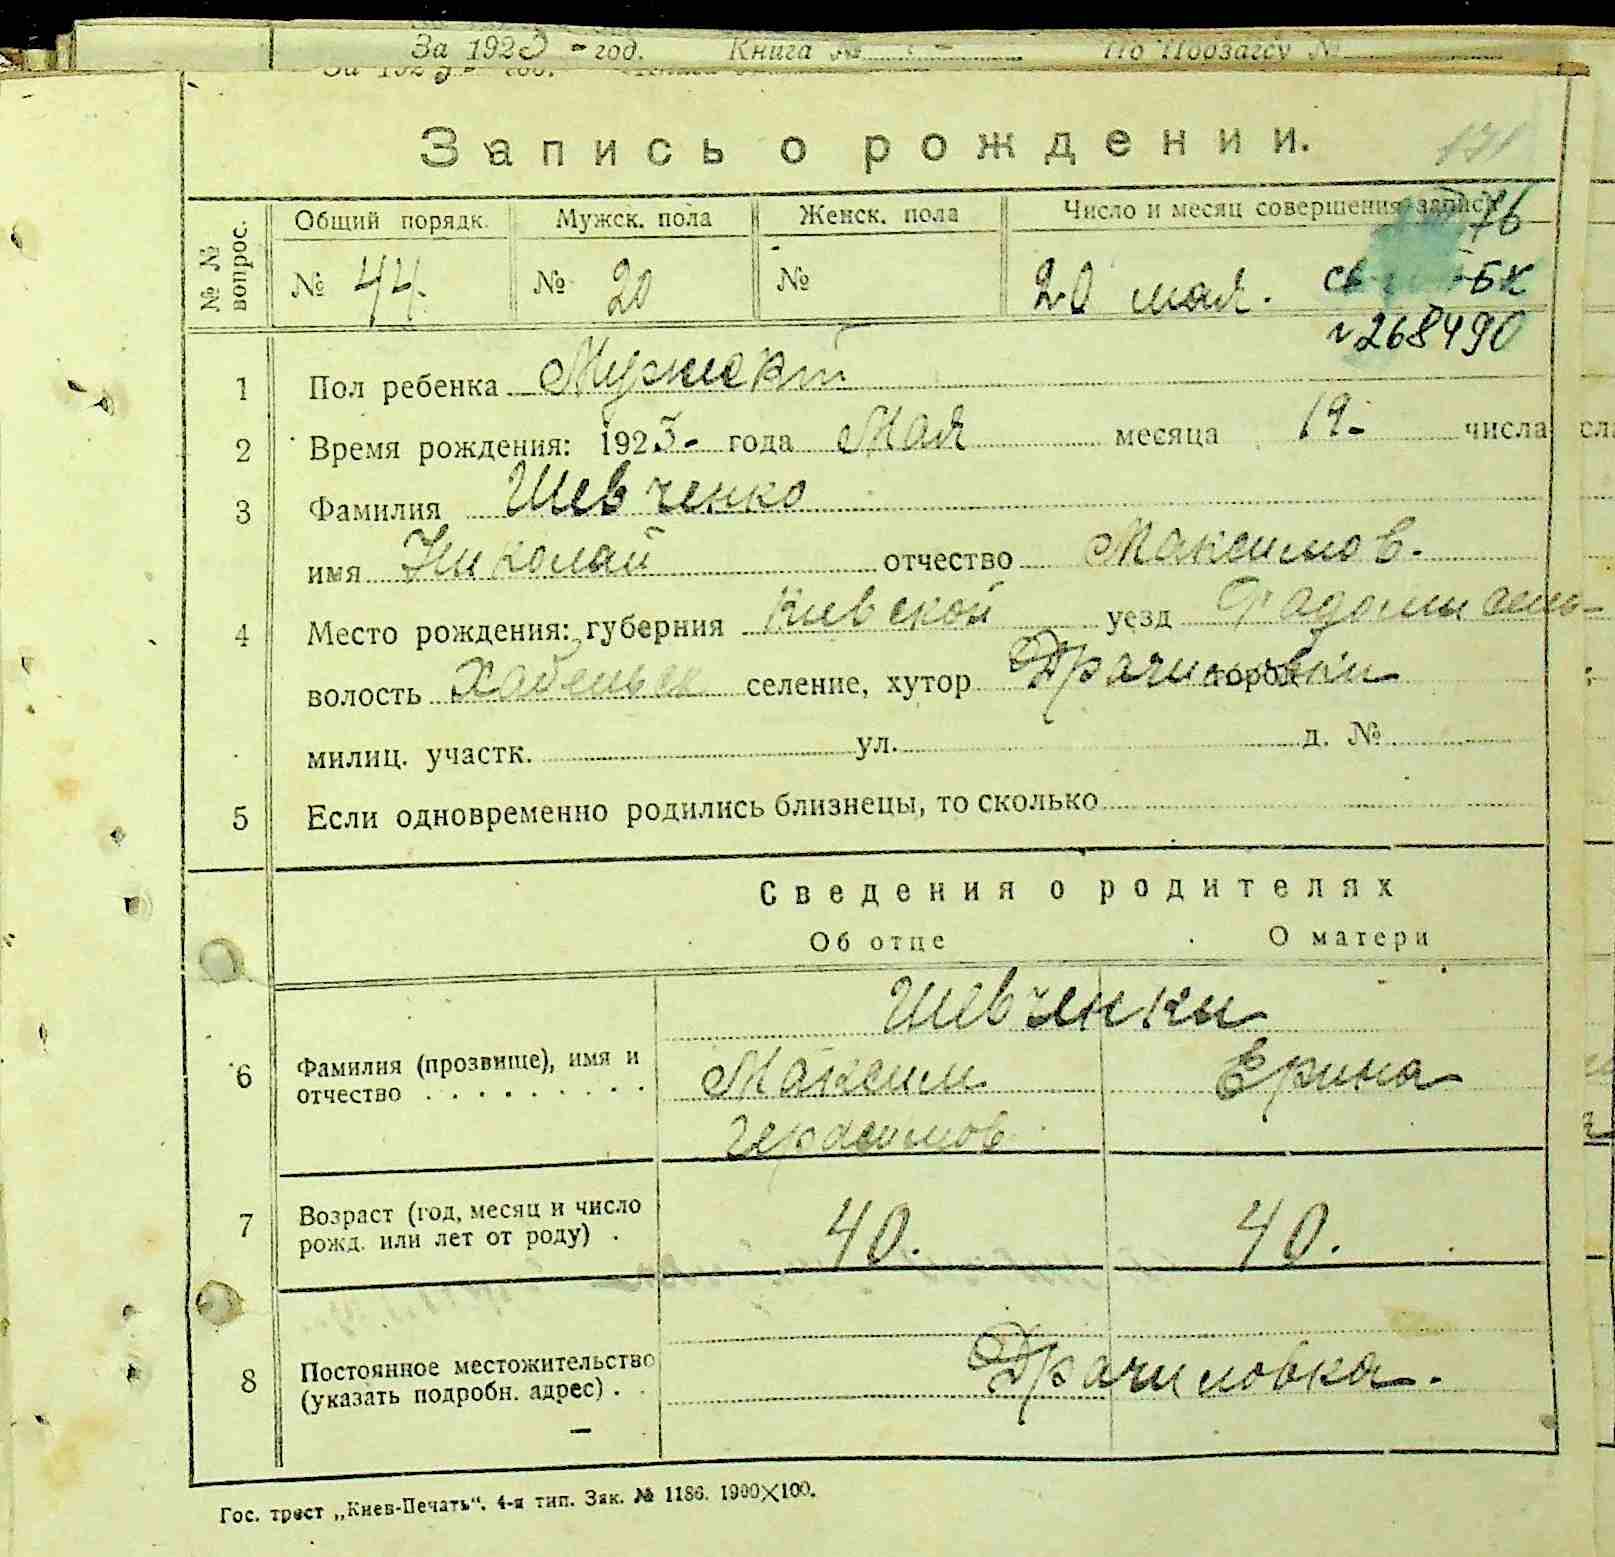 За 1923 - год. Книга № По Подзагсу №
Запись о рождении.
171
№ № вопрос.
Общий порядк. Мужск. пола Женск. пола Число и месяц совершения записи
76
№ 44. № 20 № 20 мая.
св БК
№268490
1 Пол ребенка Мужск
2 Время рождения: 1923- года Мая месяца 19- числа
3 Фамилия Шевченко
имя Николай отчество Максимов.
4 Место рождения: губерния Киевской уезд Радомысль-
волость Хабенск селение, хутор Драчиловки город
милиц. участк. ул. д. №
5 Если одновременно родились близнецы, то сколько
Сведения о родителях
Об отце О матери
Шевченки
6 Фамилия (прозвище), имя и Максим Ерина
отчество . . . . . . . . . Герасимов
7 Возраст (год, месяц и число
рожд. или лет от роду) . 40. 40.
8 Постоянное местожительство Драчиловка.
(указать подробн. адрес) . .
Гос. трест „Киев-Печать“. 4-я тип. Зак. № 1186. 1900×100.